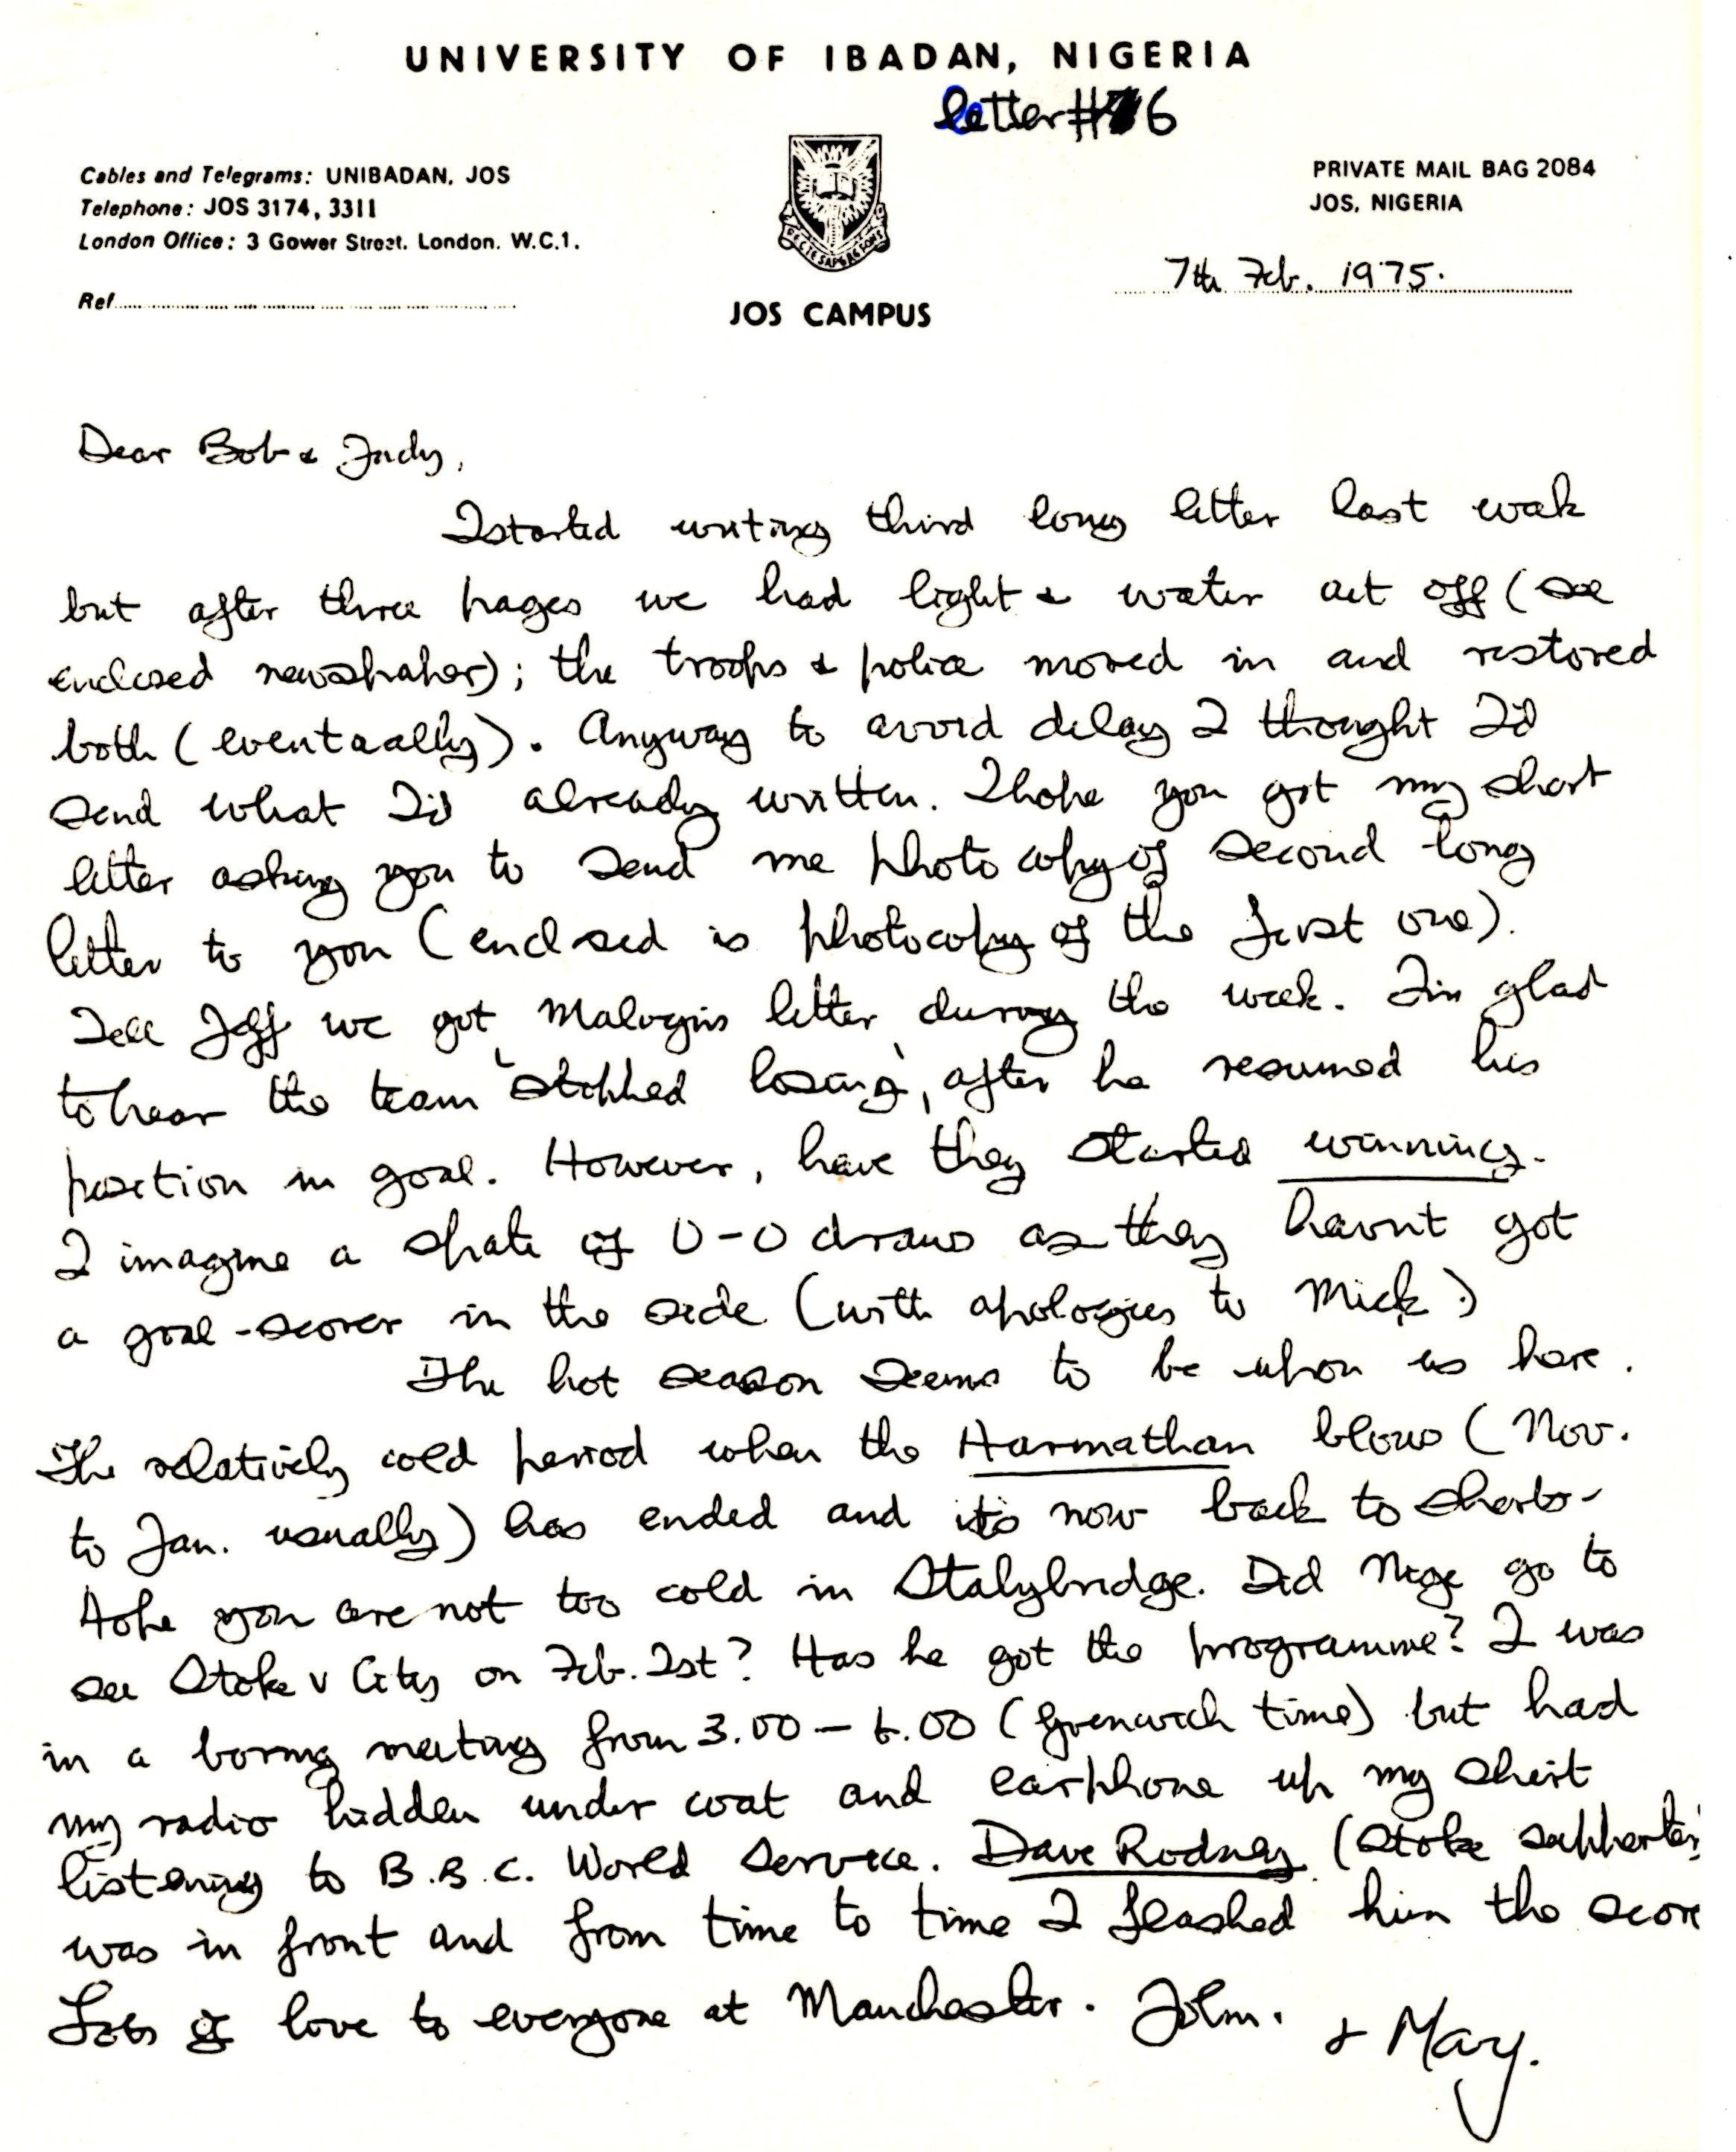 UNIVERSITY OF IBADAN, NIGERIA
letter # 6
Cables and Telegrams: UNIBADAN, JOS
Telephone: JOS 3174, 3311
London Office: 3 Gower Street, London. W.C.1.
Ref
PRIVATE MAIL BAG 2084
JOS, NIGERIA
7th Feb. 1975.
JOS CAMPUS
Dear Bob & Judy,
I started writing third long letter last week
but after three pages we had light & water cut off (see
enclosed newspaper); the troops & police moved in and restored
both (eventually). Anyway to avoid delay I thought I'd
send what I'd already written. I hope you got my short
letter asking you to send me photo copy of second long
letter to you (enclosed is photocopy of the first one).
Tell Jeff we got letter during the week. I'm glad
to hear the team 'stopped losing', after he resumed his
position in goal. However, have they started winning.
I imagine a spate of 0-0 draws as they havnt got
a goal-scorer in the side (with apologies to Mick.)
The hot season seems to be upon us here.
The relatively cold period when the Harmathan blows (Nov.
to Jan. usually) has ended and its now back to shorts-
Hope you are not too cold in Stalybridge. Did Nige go to
see Stoke v City on Feb. 1st? Has he got the programme? I was
in a boring meeting from 3.00 – 6.00 (Greenwich time) but had
my radio hidden under coat and earphone up my shirt
listening to B.B.C. World Service. Dave Rodney (Stoke supporter)
was in front and from time to time I flashed him the score
Lots of love to everyone at Manchester. John.
& Mary.